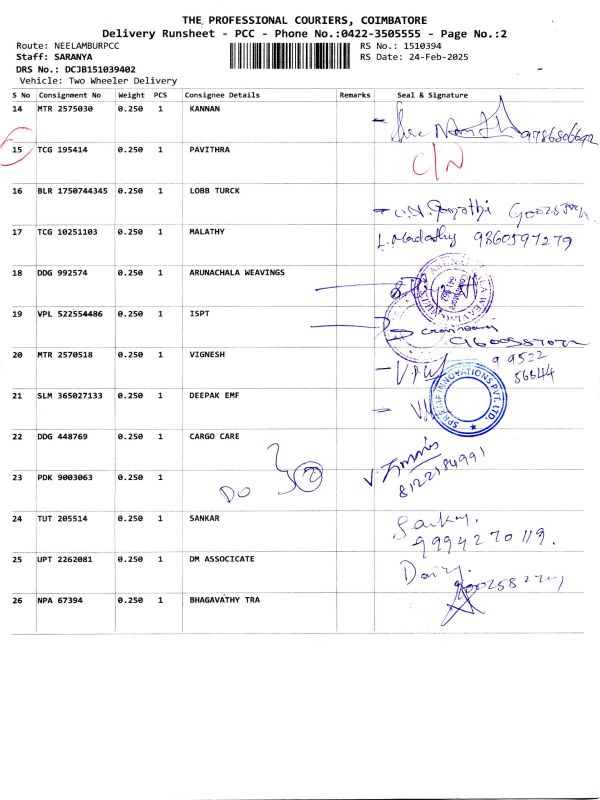 THE PROFESSIONAL COURIERS, COIMBATORE
Delivery Runsheet - PCC - Phone No.:0422-3505555 - Page No.:2
Route: NEELAMBURPCC RS No.: 1510394
Staff: SARANYA RS Date: 24-Feb-2025
DRS No.: DCJB151039402
Vehicle: Two Wheeler Delivery
S No Consignment No Weight PCS Consignee Details Remarks Seal & Signature
14 MTR 2575030 0.250 1 KANNAN
15 TCG 195414 0.250 1 PAVITHRA C/N
16 BLR 1750744345 0.250 1 LOBB TURCK
17 TCG 10251103 0.250 1 MALATHY 9360597279
18 DDG 992574 0.250 1 ARUNACHALA WEAVINGS
19 VPL 522554486 0.250 1 ISPT
20 MTR 2570518 0.250 1 VIGNESH
21 SLM 365027133 0.250 1 DEEPAK EMF INNOVATIONS PVT. LTD.
22 DDG 448769 0.250 1 CARGO CARE
23 PDK 9003063 0.250 1 DO 8122184991
24 TUT 205514 0.250 1 SANKAR 9994270119.
25 UPT 2262081 0.250 1 DM ASSOCICATE
26 NPA 67394 0.250 1 BHAGAVATHY TRA